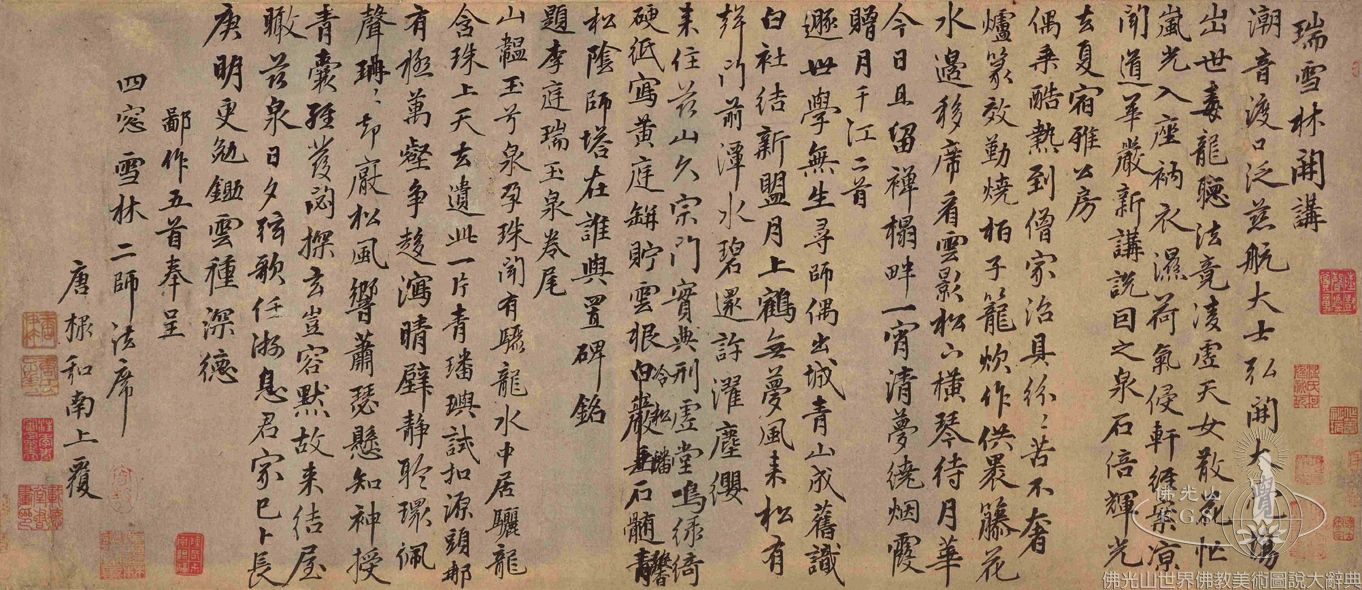 瑞雪林開講
潮音渡口泛慈航大士弘開大覺場
出世毒龍聽法竟淩虛天女散花忙
嵐光入座衲衣濕荷氣侵軒經案凉
聞道華嚴新講説囙之泉石倍輝光
去夏宿雅公房
偶乗酷熱到僧家治具紛〻苦不奢
爐篆效勤燒栢子籠炊作供褁藤花
水邊移席看雲影松下横琴待月華
今日且留禪榻畔一宵清夢繞烟霞
贈月千江二首
遯世學無生尋師偶出城青山成舊識
白社結新盟月上鶴無夢風来松有
聲門前潭水碧還許濯塵纓
来住兹山久宗門寳典刑虚堂鳴緑綺
硬紙寫黄庭缾貯雲根白嚴垂石髄青
冷 松蟠
松陰師塔在誰與置碑銘
題李庭瑞玉泉卷尾
山韞玉兮泉孕珠聞有驪龍水中居驪龍
含珠上天去遺此一片青璠璵試扣源頭那
有極萬壑争趍瀉晴壁静聆環佩
聲珊〻却厭松風響蕭瑟懸知神授
青囊經發閟探玄豈容默故来結屋
瞰兹泉日夕弦歌任游息君家已卜長
庚明更勉鋤雲種深德
鄙作五首奉呈
四窓雪林二師法席
唐棣和南上覆
佛光山
FGS
佛光山世界佛教美術圖說大辭典